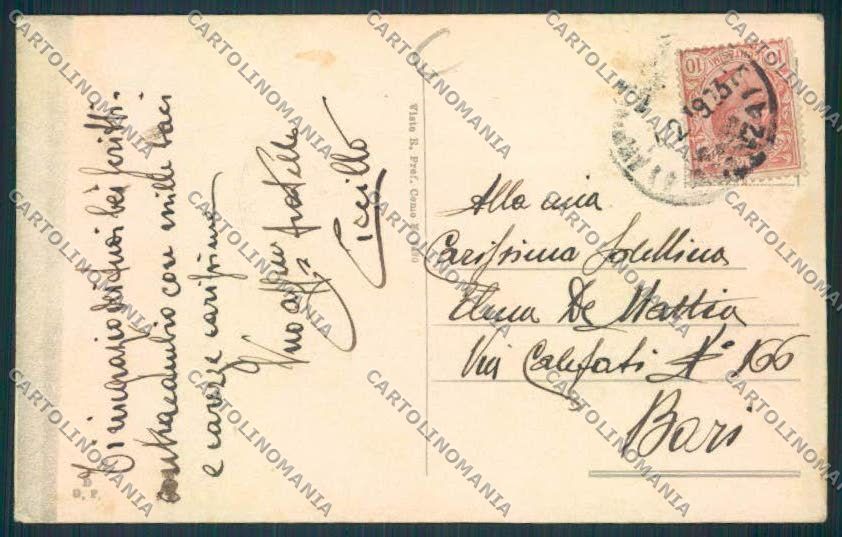 Ti ringrazio dei tuoi bei scritti.
contracambio con mille baci
e carezze carissima
Tuo aff.mo fratello
Ciccillo
Visto R. Pref. Como
Alla mia
Carissima Sorellina
De Mattia
Via Calefati N° 166
Bari
10
CARTOLINOMANIA